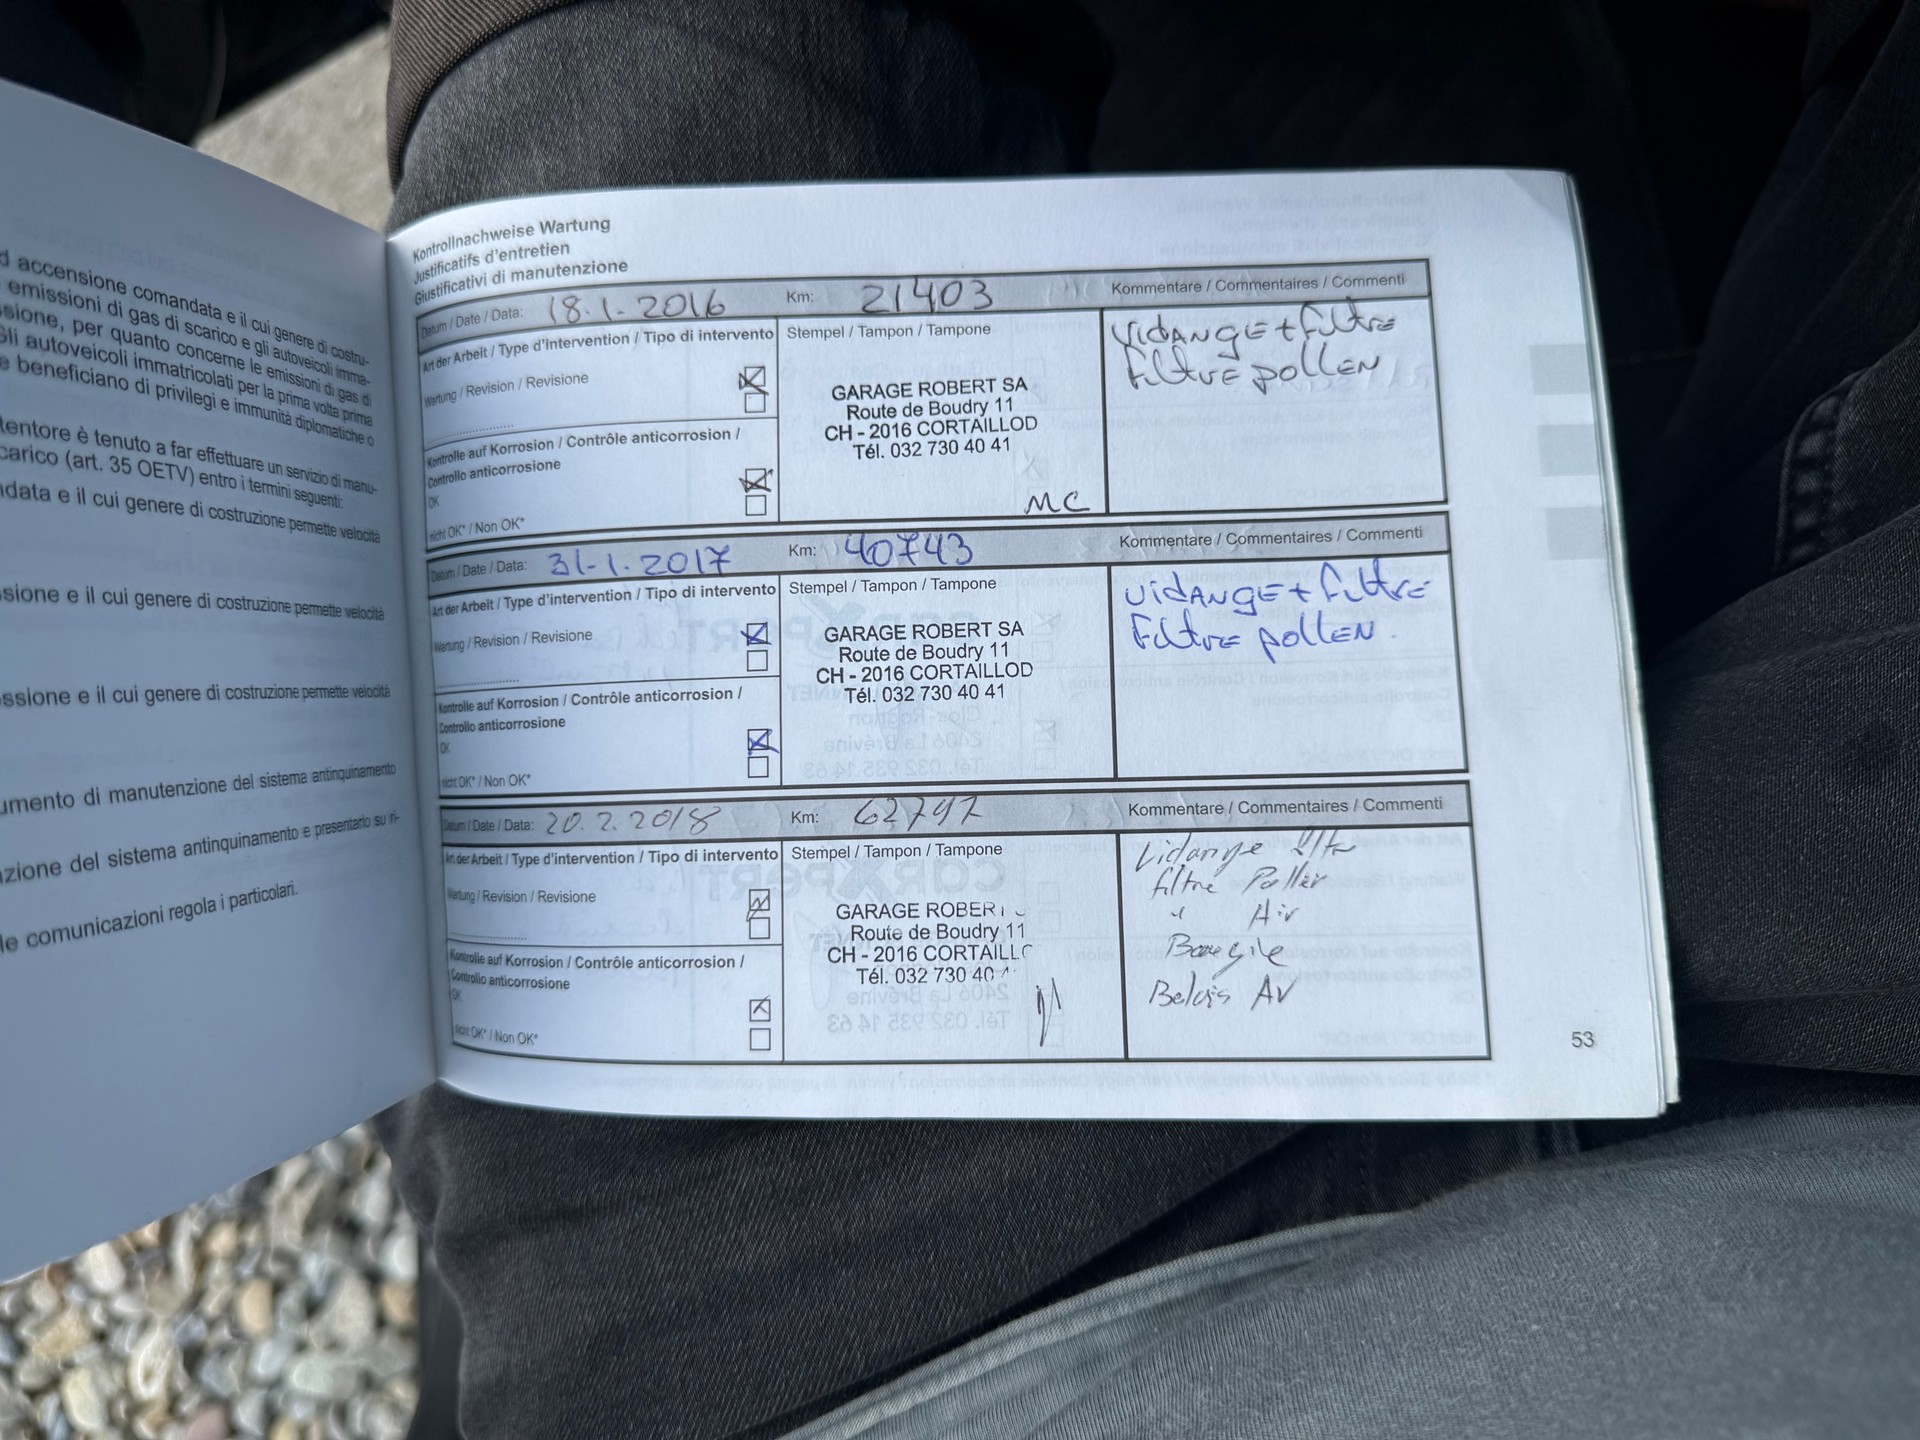 d accensione comandata e il cui genere di costru-
emissioni di gas di scarico e gli autoveicoli imma-
ssione, per quanto concerne le emissioni di gas di
Gli autoveicoli immatricolati per la prima volta prima
e beneficiano di privilegi e immunità diplomatiche o
tentore è tenuto a far effettuare un servizio di manu-
carico (art. 35 OETV) entro i termini seguenti:
ndata e il cui genere di costruzione permette velocità
ssione e il cui genere di costruzione permette velocità
essione e il cui genere di costruzione permette velocità
umento di manutenzione del sistema antinquinamento
azione del sistema antinquinamento e presentarlo su ri-
le comunicazioni regola i particolari.
Kontrollnachweise Wartung
Justificatifs d'entretien
Giustificativi di manutenzione
Datum / Date / Data: 18.1.2016 Km: 21403 Kommentare / Commentaires / Commenti
Art der Arbeit / Type d'intervention / Tipo di intervento
Wartung / Revision / Revisione
Kontrolle auf Korrosion / Contrôle anticorrosion /
Controllo anticorrosione
OK
nicht OK* / Non OK*
Stempel / Tampon / Tampone
GARAGE ROBERT SA
Route de Boudry 11
CH - 2016 CORTAILLOD
Tél. 032 730 40 41
MC
Vidange + filtre
filtre pollen
Datum / Date / Data: 31.1.2017 Km: 40743 Kommentare / Commentaires / Commenti
Art der Arbeit / Type d'intervention / Tipo di intervento
Wartung / Revision / Revisione
Kontrolle auf Korrosion / Contrôle anticorrosion /
Controllo anticorrosione
OK
nicht OK* / Non OK*
Stempel / Tampon / Tampone
GARAGE ROBERT SA
Route de Boudry 11
CH - 2016 CORTAILLOD
Tél. 032 730 40 41
Vidange + filtre
Filtre pollen.
Datum / Date / Data: 20.2.2018 Km: 62797 Kommentare / Commentaires / Commenti
Art der Arbeit / Type d'intervention / Tipo di intervento
Wartung / Revision / Revisione
Kontrolle auf Korrosion / Contrôle anticorrosion /
Controllo anticorrosione
OK
nicht OK* / Non OK*
Stempel / Tampon / Tampone
GARAGE ROBER
Route de Boudry 11
CH - 2016 CORTAILL
Tél. 032 730 40
Vidange
filtre Pollen
" Air
Bougie
Balais AV
53